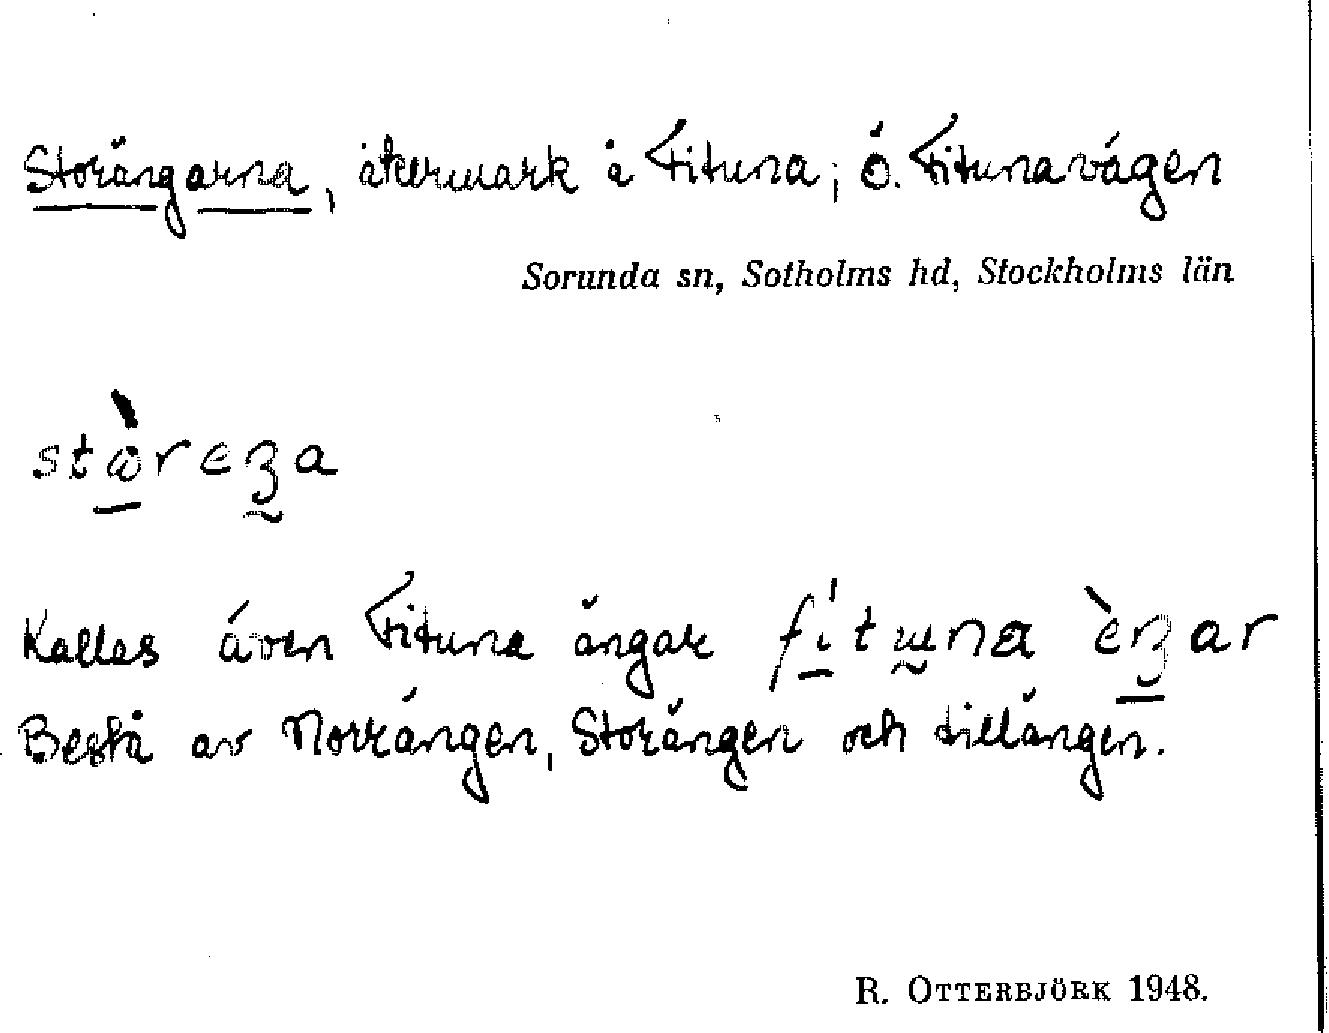 Storängarna, åkermark å Fituna; ö. Fitunavägen
Sorunda sn, Sotholms hd, Stockholms län
Kallas även Fituna ängar
Bestå av Norrängen, Storängen och Lillängen.
R. OTTERBJÖRK 1948.